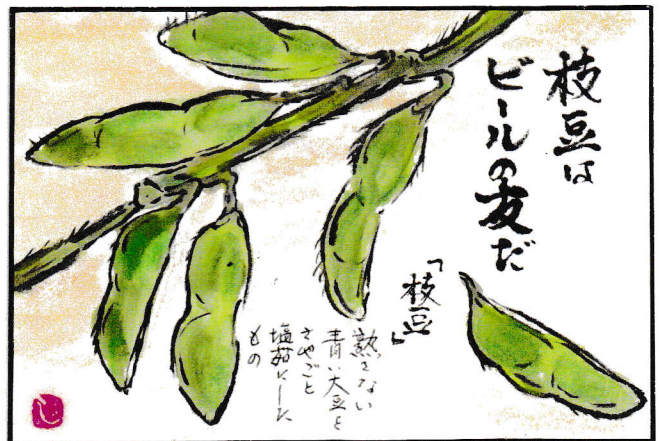 枝豆は
ビールの友だ
「枝豆」
熟さない
青い大豆を
さやごと
塩茹でした
もの